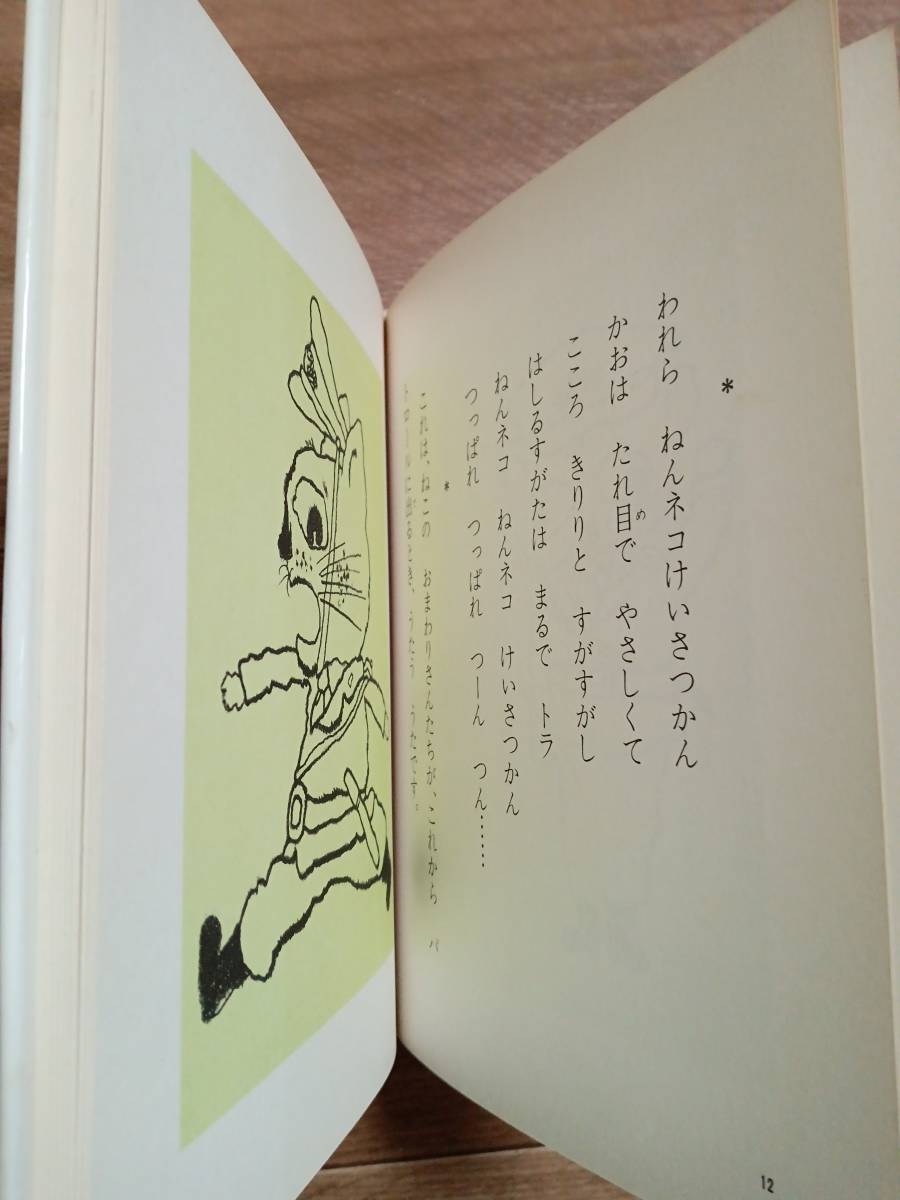 *
われら ねんネコけいさつかん
かおは たれ目で やさしくて
め
こころ きりりと すがすがし
はしるすがたは まるで トラ
ねんネコ ねんネコ けいさつかん
つっぱれ つっぱれ つーん つん……
*
これは、ねこの おまわりさんたちが、これから パ
トロールに出るとき、うたう うたです。
で
12